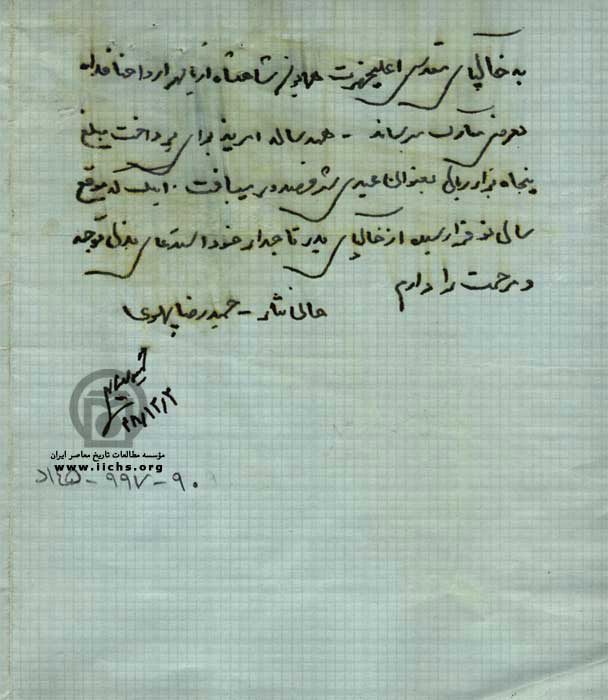 به خاکپای مقدس اعلیحضرت همایون شاهنشاه آریامهر ارواحنا فداه
بعرض مبارک میرساند - همه ساله امریه برای پرداخت مبلغ
پنجاه هزار ریال بعنوان عیدی شرفصدور مییافت . اینک که موقع
سال نو فرا رسیده از خاکپای پدر تاجدار خود استدعای بذل توجه
و مرحمت را دارم
جان نثار - حمیدرضا پهلوی
۴۸/۱۲/۴
مؤسسه مطالعات تاریخ معاصر ایران
www.iichs.org
۹۰-۹۹۷-